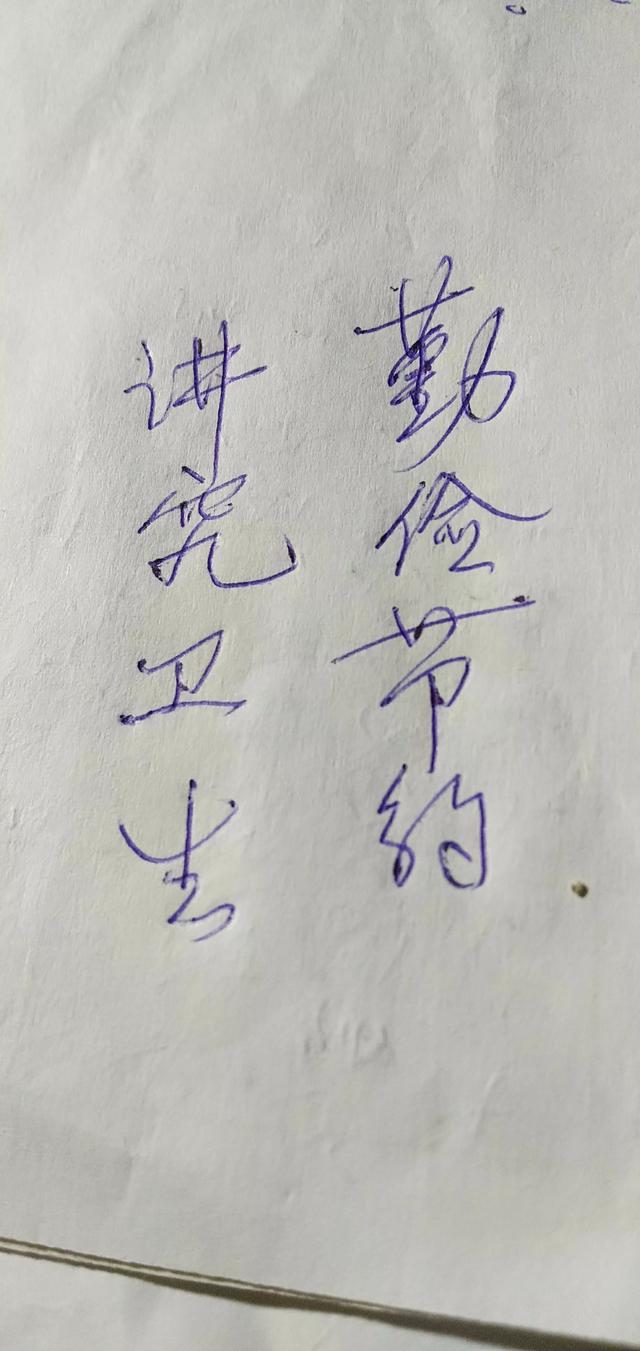 勤俭节约
讲究卫生